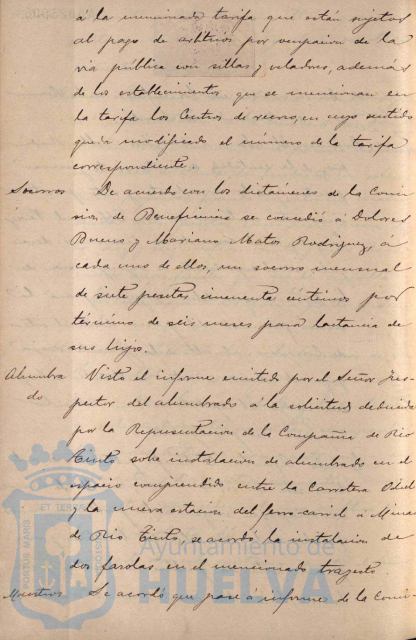 á la mencionada tarifa que están sujetos
al pago de arbitrios por ocupacion de la
via pública con sillas y veladores, además
de los establecimientos que se mencionan en
la tarifa los Centros de recreo, en cuyo sentido
queda modificado el número de la tarifa
correspondiente.
Socorros De acuerdo con los dictámenes de la Comi-
sion de Beneficencia se concedió á Dolores
Bueno y Mariano Matos Rodriguez, á
cada uno de ellos, un socorro mensual
de siete pesetas cincuenta céntimos por
término de seis meses para lactancia de
sus hijos.
Alumbra Visto el informe emitido por el Señor Ins-
do pector del alumbrado á la solicitud deducida
por la Representacion de la Compañia de Rio
Tinto sobre instalacion de alumbrado en el
espacio comprendido entre la Carretera Odiel
y la nueva estacion del ferro-carril á Minas
de Rio Tinto, se acordó la instalacion de
dos farolas en el mencionado trayecto.
Maestros Se acordó que pase á informe de la Comi-
Ayuntamiento de
HUELVA
PORTUS MARIS
ET TERR